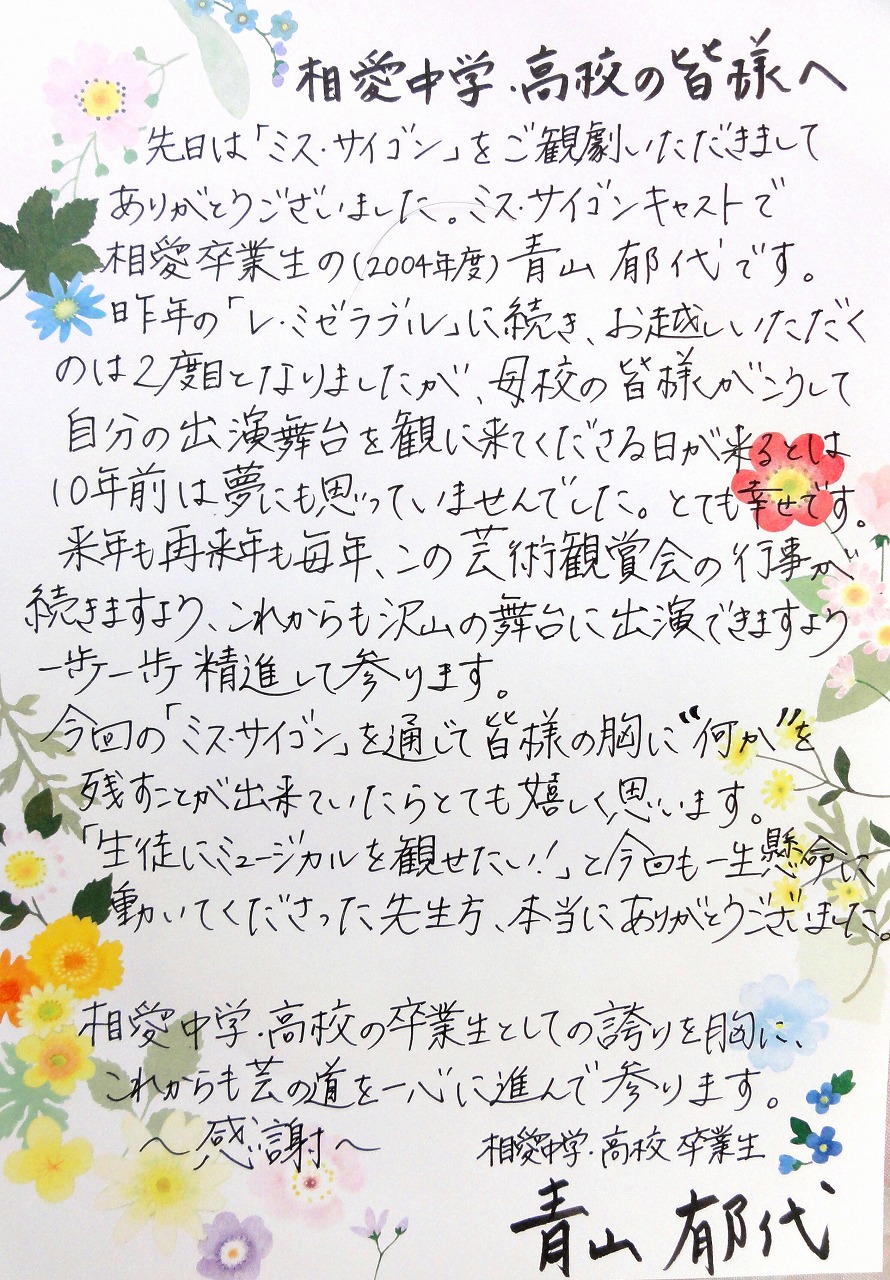 相愛中学・高校の皆様へ
先日は「ミス・サイゴン」をご観劇いただきまして
ありがとうございました。ミス・サイゴンキャストで
相愛卒業生の(2004年度)青山 郁代です。
昨年の「レ・ミゼラブル」に続き、お越しいただく
のは2度目となりましたが、母校の皆様がこうして
自分の出演舞台を観に来てくださる日が来るとは
10年前は夢にも思っていませんでした。とても幸せです。
来年も再来年も毎年、この芸術観賞会の行事が
続きますよう、これからも沢山の舞台に出演できますよう
一歩一歩 精進して参ります。
今回の「ミス・サイゴン」を通じて皆様の胸に“何か”を
残すことが出来ていたらとても嬉しく思います。
「生徒にミュージカルを観せたい!」と今回も一生懸命に
動いてくださった先生方、本当にありがとうございました。
相愛中学・高校の卒業生としての誇りを胸に、
これからも芸の道を一心に進んで参ります。
〜感謝〜
相愛中学・高校 卒業生
青山 郁代